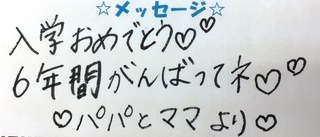 ☆メッセージ☆
入学おめでとう♡♡
6年間がんばってネ♡♡
♡パパとママより♡